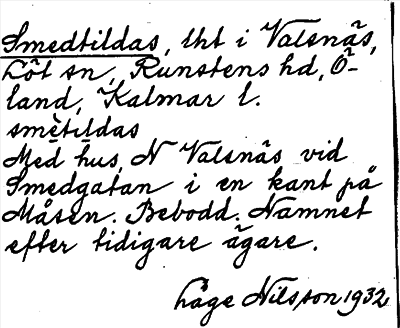 Smedtildas, lht i Valsnäs,
Löt sn, Runstens hd, Ö-
land, Kalmar l.
smètildas
Med hus, N Valsnäs vid
Smedgatan i en kant på
Måsen. Bebodd. Namnet
efter tidigare ägare.
Håge Nilsson 1932